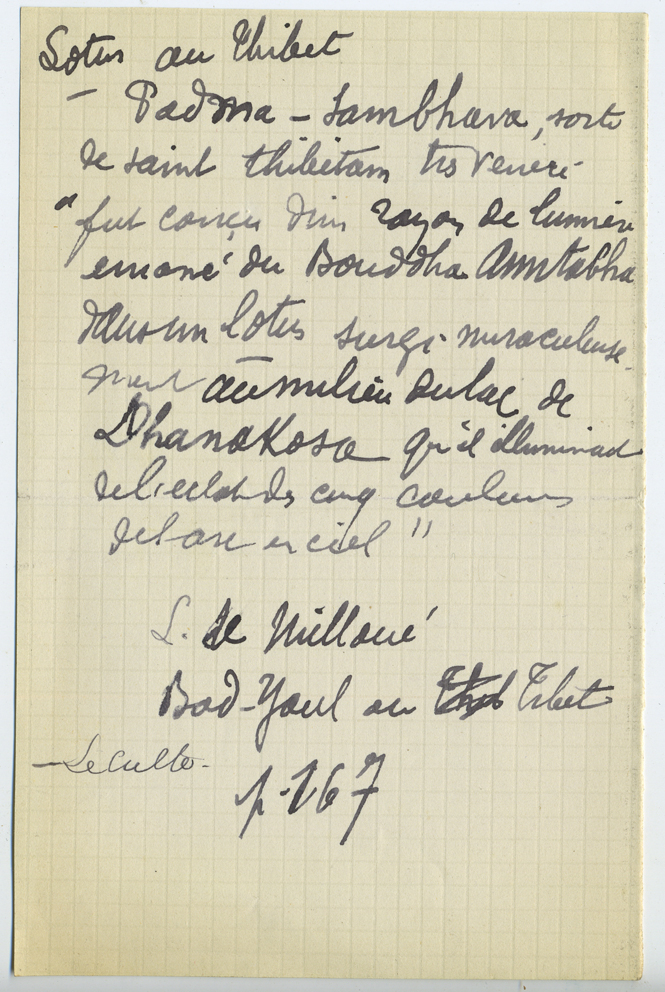 Lotus au Thibet
– Padma – Sambhava, sorte
de saint thibétain très vénéré
"fut conçu d'un rayon de lumière
émané du Bouddha Amitabha
dans un lotus surgi miraculeuse-
ment au milieu du lac de
Dhanakosa qu'il illuminait
de l'éclat des cinq couleurs
de l'arc en ciel"
L. de Milloué
Bod-Youl ou Tibet
– Le Culte -
p. 167